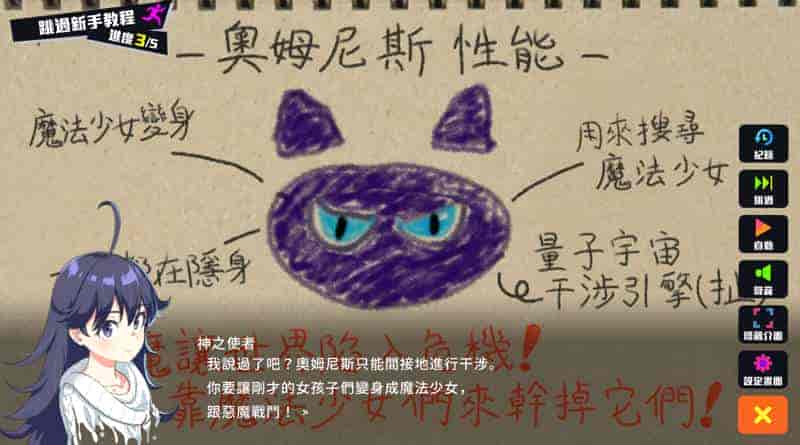 跳過新手教程
進度 3/5
－奧姆尼斯性能－
魔法少女變身
用來搜尋
魔法少女
在隱身
量子宇宙
干涉引擎(扯
魔讓世界陷入危機！
靠魔法少女們來幹掉它們！
神之使者
我說過了吧？奧姆尼斯只能間接地進行干涉。
你要讓剛才的女孩子們變身成魔法少女，
跟惡魔戰鬥！ >
紀錄
跳過
自動
聲音
隱藏介面
設定畫面